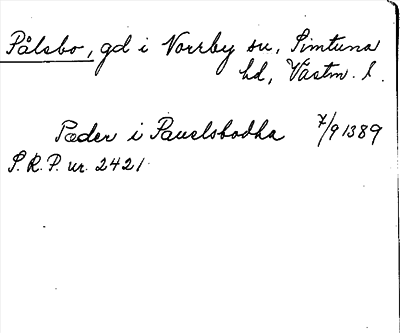 Pålsbo, gd i Norrby sn, Simtuna
hd, Västm. l.
Pæder i Pauelsbodha 7/9 1389
S.R.P. nr. 2421